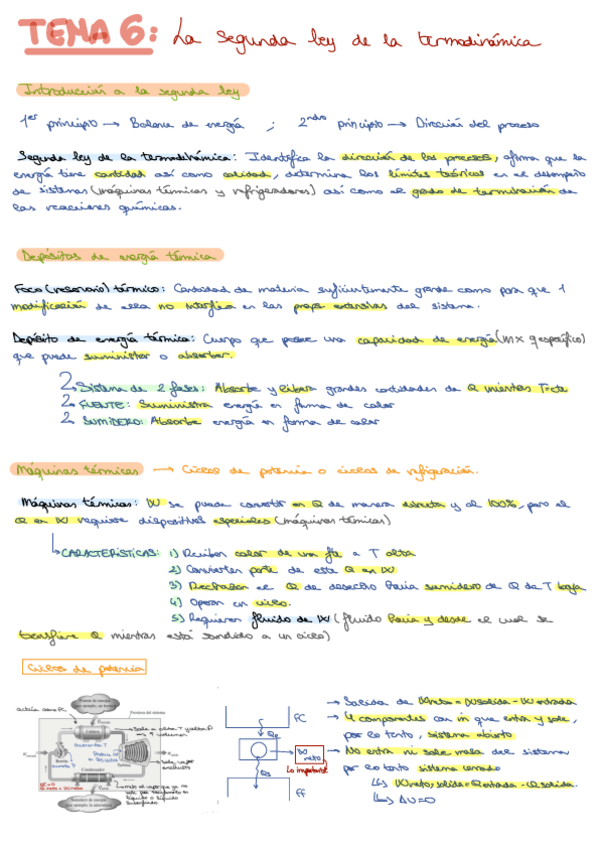 TEMA 6: La segunda ley de la termodinámica
Introducción a la segunda ley
1er principio → Balance de energía ; 2ndo principio → Dirección del proceso
Segunda ley de la termodinámica: Identifica la dirección de los procesos, afirma que la
energía tiene cantidad así como calidad, determina los límites teóricos en el desempeño
de sistemas (máquinas térmicas y refrigeradores) así como el grado de terminación de
las reacciones químicas.
Depósitos de energía térmica
Foco (reservorio) térmico: Cantidad de materia suficientemente grande como para que 1
modificación de ella no interfiera en las props extensivas del sistema.
Depósito de energía térmica: Cuerpo que posee una capacidad de energía (m x q específico)
que puede suministrar o absorber.
Sistema de 2 fases: Absorbe y libera grandes cantidades de Q mientras T=cte
FUENTE: Suministra energía en forma de calor
SUMIDERO: Absorbe energía en forma de calor
Máquinas térmicas → Ciclos de potencia o ciclos de refrigeración.
Máquinas térmicas: W se puede convertir en Q de manera directa y al 100%, pero el
Q en W requiere dispositivos especiales (máquinas térmicas)
CARACTERÍSTICAS: 1) Reciben calor de una fte a T alta
2) Convierten parte de este Q en W
3) Rechazan el Q de desecho hacia sumidero de Q de T baja
4) Operan en ciclo.
5) Requieren fluido de W (fluido hacia y desde el cual se
transfiere Q mientras está sometido a un ciclo)
Ciclos de potencia
Caldera
Bomba
Turbina
Condensador
FC
Qc
W neto
Lo importante
FF
→ Salida de Wneto = W salida - W entrada
→ 4 componentes con m que entra y sale,
por lo tanto, sistema abierto
→ No entra ni sale masa del sistema
por lo tanto sistema cerrado
W neto, salida = Q entrada - Q salida.
ΔU=0